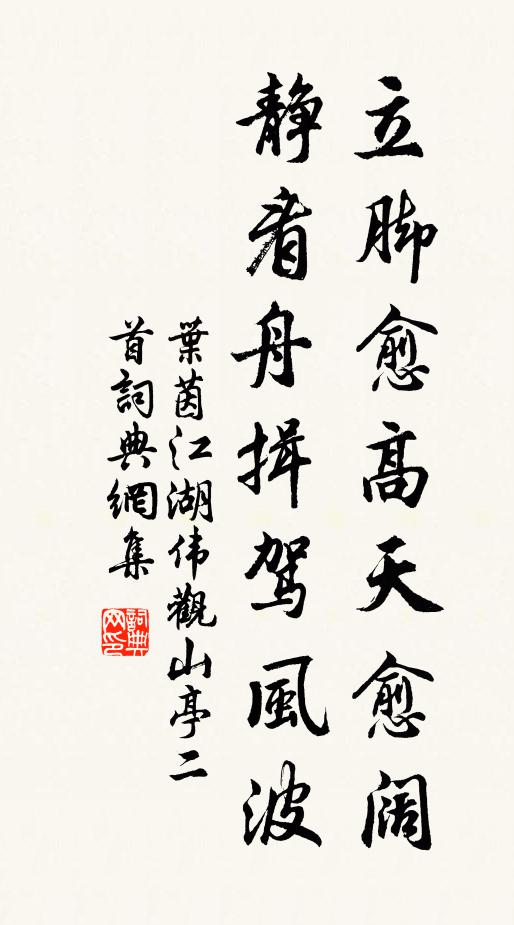 立脚愈高天愈阔
静看舟揖駕風波
葉茵江湖伟觀山亭二
首詞典網集
詞典网印